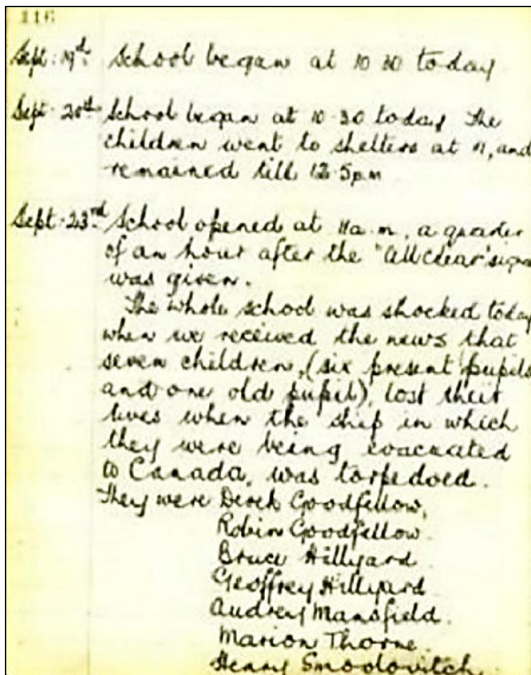 116
Sept. 19th. School began at 10 30 today
Sept. 20th School began at 10.30 today The
children went to shelters at 11, and
remained till 12.5pm
Sept. 23rd School opened at 11a.m, a quarter
of an hour after the "All Clear' signal
was given.
The whole school was shocked today
when we received the news that
seven children, (six present pupils
and one old pupil), lost their
lives when the ship in which
they were being evacuated
to Canada, was torpedoed.
They were Derek Goodfellow,
Robin Goodfellow.
Bruce Hillyard.
Geoffrey Hillyard.
Audrey Mansfield.
Marion Thorne.
Henry Smoolovitch.